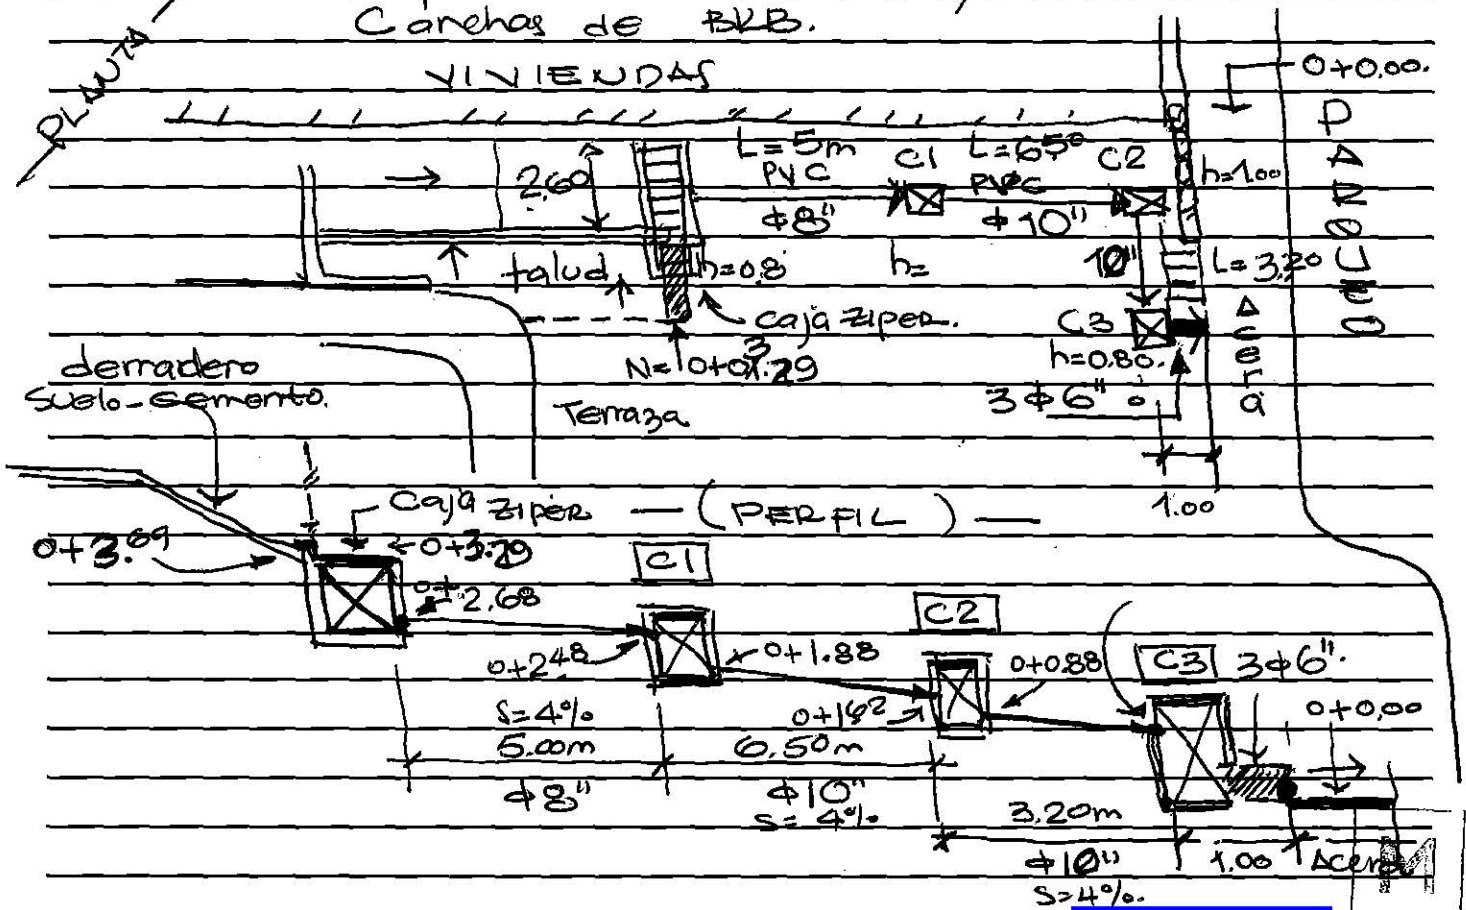 Canchas de BKB.
PLANTA
VIVIENDAS
0+0.00.
PARQUEO
L=5m
PVC
φ8"
C1
L=650
PVC
φ10"
C2
h=1.00
2.60
talud
h=0.8
h=
10"
L=3.20
caja ziper.
C3
h=0.80.
Acera
3φ6"
1.00
derradero
suelo-cemento.
Terraza
caja ziper — (PERFIL) —
0+3.69
0+3.29
0+2.68
C1
0+2.48
0+1.88
C2
0+1.62
0+0.88
C3
3φ6".
0+0,00
S=4%
5.00m
φ8"
6.50m
φ10"
S=4%
3.20m
φ10"
S=4%.
1.00
Acera